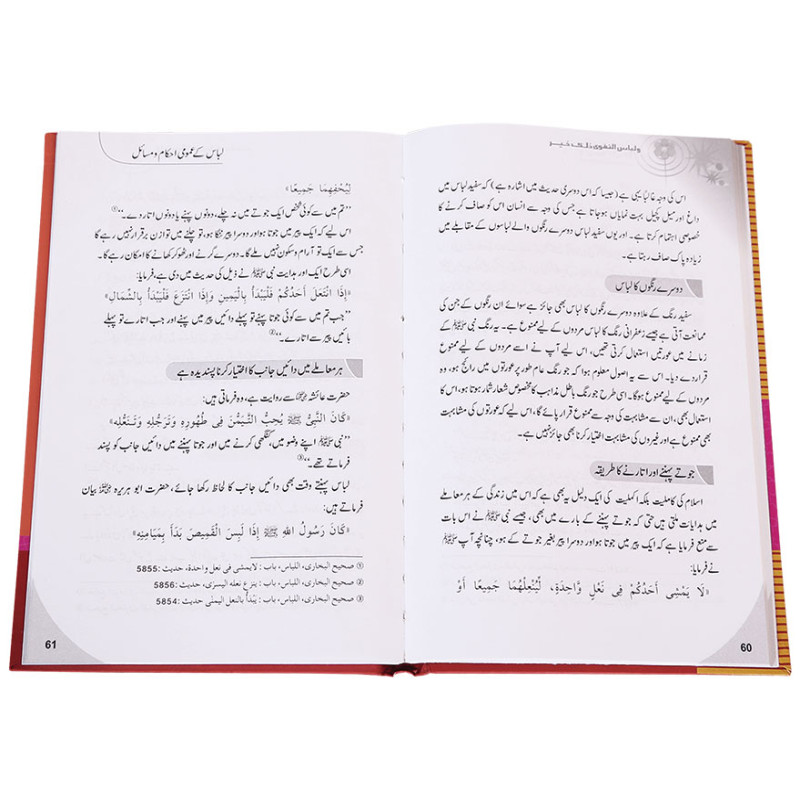 ولباس التقوی ذلک خیر
اس کی وجہ غالباً یہی ہے (جیسا کہ اس دوسری حدیث میں اشارہ ہے) کہ سفید لباس میں
داغ اور میل کچیل بہت نمایاں ہو جاتا ہے جس کی وجہ سے انسان اس کو صاف کرنے کا
خصوصی اہتمام کرتا ہے۔ اور یوں سفید لباس دوسرے رنگوں والے لباسوں کے مقابلے میں
زیادہ پاک صاف رہتا ہے۔
دوسرے رنگوں کا لباس
سفید رنگ کے علاوہ دوسرے رنگوں کا لباس بھی جائز ہے سوائے ان رنگوں کے جن کی
ممانعت آتی ہے جیسے زعفرانی رنگ کا لباس مردوں کے لیے ممنوع ہے۔ یہ رنگ نبی ﷺ کے
زمانے میں عورتیں استعمال کرتی تھیں، اس لیے آپ نے اسے مردوں کے لیے ممنوع
قرار دے دیا۔ اس سے یہ اصول معلوم ہوا کہ جو رنگ عام طور پر عورتوں میں رائج ہو، وہ
مردوں کے لیے ممنوع ہوگا۔ اسی طرح جو رنگ باطل مذاہب کا مخصوص شعار شمار ہوتا ہو، اس کا
استعمال بھی، ان سے مشابہت کی وجہ سے ممنوع قرار پائے گا، اس لیے کہ عورتوں کی مشابہت
بھی ممنوع ہے اور غیروں کی مشابہت اختیار کرنا بھی جائز نہیں ہے۔
جوتے پہننے اور اتارنے کا طریقہ
اسلام کی کاملیت بلکہ اکملیت کی ایک دلیل یہ بھی ہے کہ اس میں زندگی کے ہر معاملے
میں ہدایات ملتی ہیں حتیٰ کہ جوتے پہننے کے بارے میں بھی، جیسے نبی ﷺ نے اس بات
سے منع فرمایا ہے کہ ایک پیر میں جوتا ہو اور دوسرا پیر بغیر جوتے کے ہو، چنانچہ آپ ﷺ
نے فرمایا:
«لَا يَمْشِي أَحَدُكُمْ فِي نَعْلٍ وَّاحِدَةٍ، لِيُنْعِلْهُمَا جَمِيعًا أَوْ
60
لباس کے عمومی احکام و مسائل
لِيُحْفِهِمَا جَمِيعًا»
”تم میں سے کوئی شخص ایک جوتے میں نہ چلے، دونوں پہنے یا دونوں اتار دے۔“①
اس لیے کہ ایک پیر میں جوتا ہو اور دوسرا پیر ننگا ہو، تو چلنے میں توازن برقرار نہیں رہے گا
جس سے تو آرام و سکون نہیں ملے گا۔ دوسرے گرنے اور ٹھوکر کھانے کا امکان رہے گا۔
اسی طرح ایک اور ہدایت نبی ﷺ نے ذیل کی حدیث میں دی ہے، فرمایا:
«إِذَا انْتَعَلَ أَحَدُكُمْ فَلْيَبْدَأْ بِالْيَمِينِ وَإِذَا انْتَزَعَ فَلْيَبْدَأْ بِالشِّمَالِ»
”جب تم میں سے کوئی جوتا پہنے تو پہلے دائیں پیر میں پہنے اور جب اتارے تو پہلے
بائیں پیر سے اتارے۔“②
ہر معاملے میں دائیں جانب کا اختیار کرنا پسندیدہ ہے
حضرت عائشہ رضی اللہ عنہا سے روایت ہے، وہ فرماتی ہیں:
«كَانَ النَّبِيُّ ﷺ يُحِبُّ التَّيَمُّنَ فِي طُهُورِهِ وَتَرَجُّلِهِ وَتَنَعُّلِهِ»
”نبی ﷺ اپنے وضو میں، کنگھی کرنے میں اور جوتا پہننے میں دائیں جانب کو پسند
فرماتے تھے۔“③
لباس پہنتے وقت بھی دائیں جانب کا لحاظ رکھا جائے، حضرت ابو ہریرہ رضی اللہ عنہ بیان
فرماتے ہیں:
«كَانَ رَسُولُ اللهِ ﷺ إِذَا لَبِسَ الْقَمِيصَ بَدَأَ بِمَيَامِنِهِ»
① صحیح البخاری، اللباس، باب: لایمشی فی نعل واحدة، حدیث: 5855
② صحیح البخاری، اللباس، باب: ینزع نعله الیسری، حدیث: 5856
③ صحیح البخاری، اللباس، باب: یبدأ بالنعل الیمنٰی حدیث: 5854
61